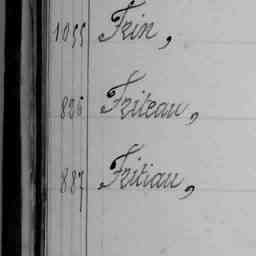 1055 Frin,
826 Friteau,
887 Fritiau,